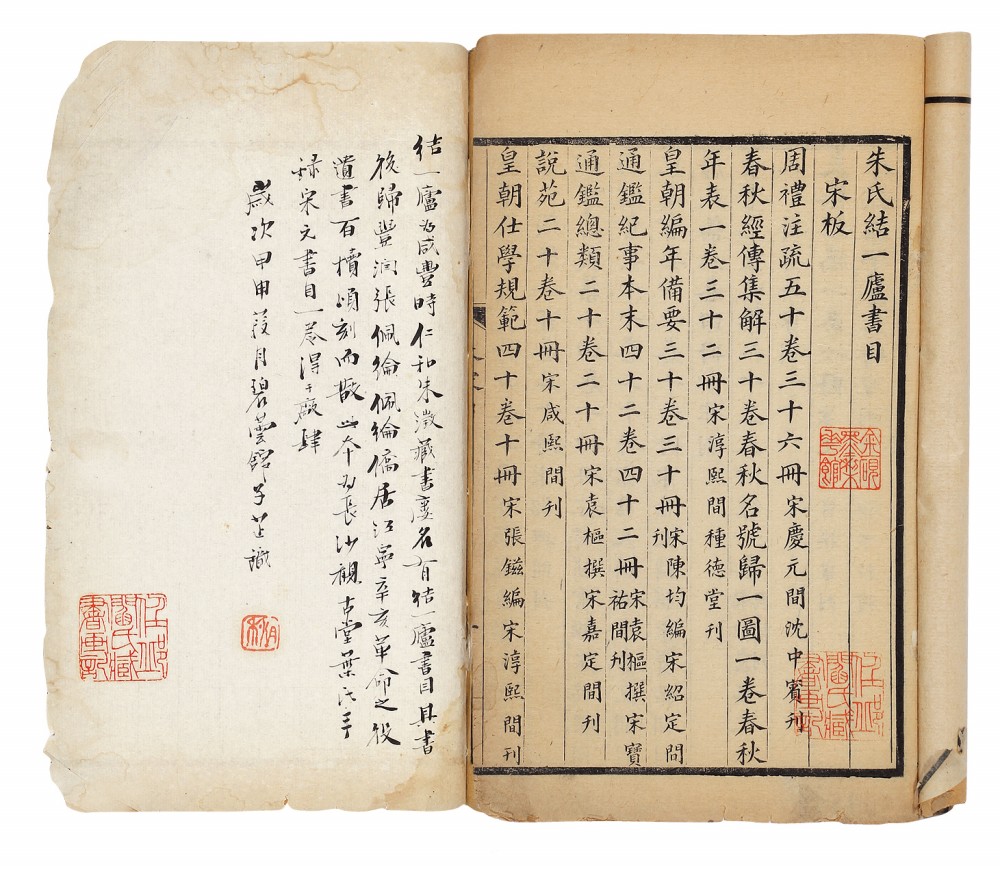 朱氏結一廬書目
宋板
周禮注疏五十卷三十六冊宋慶元間沈中賓刊
春秋經傳集解三十卷春秋名號歸一圖一卷春秋
年表一卷三十二冊宋淳熙間種德堂刊
皇朝編年備要三十卷三十冊宋陳均編宋紹定間刊
通鑑紀事本末四十二卷四十二冊宋袁樞撰宋寶祐間刊
通鑑總類二十卷二十冊宋袁樞撰宋嘉定間刊
說苑二十卷十冊宋咸熙間刊
皇朝仕學規範四十卷十冊宋張鎡編宋淳熙間刊
結一廬為咸豐時仁和朱澂藏書處名有結一廬書目其書
後歸豐潤張佩綸佩綸僑居江寧辛亥革命之役
遺書百櫝頃刻而散此本為長沙觀古堂葉氏手
錄宋元書目一卷得于廠肆
歲次甲申葭月碧館子芷識
任邱閻氏臧書記
任邱閻氏臧書記